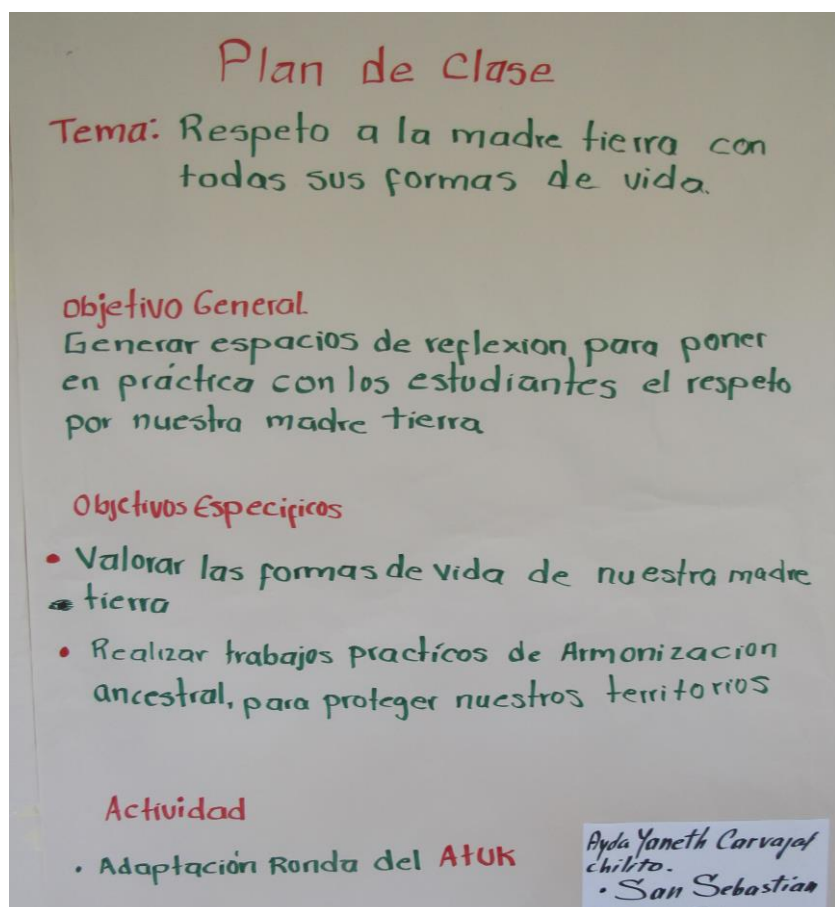 Plan de Clase
Tema: Respeto a la madre tierra con
todas sus formas de vida.
Objetivo General.
Generar espacios de reflexion, para poner
en práctica con los estudiantes el respeto
por nuestra madre tierra
Objetivos Especificos
• Valorar las formas de vida de nuestra madre
tierra
• Realizar trabajos practícos de Armonizacion
ancestral, para proteger nuestros territorios
Actividad
• Adaptación Ronda del AtUK
Ayda Yaneth Carvajal
chilito.
• San Sebastian